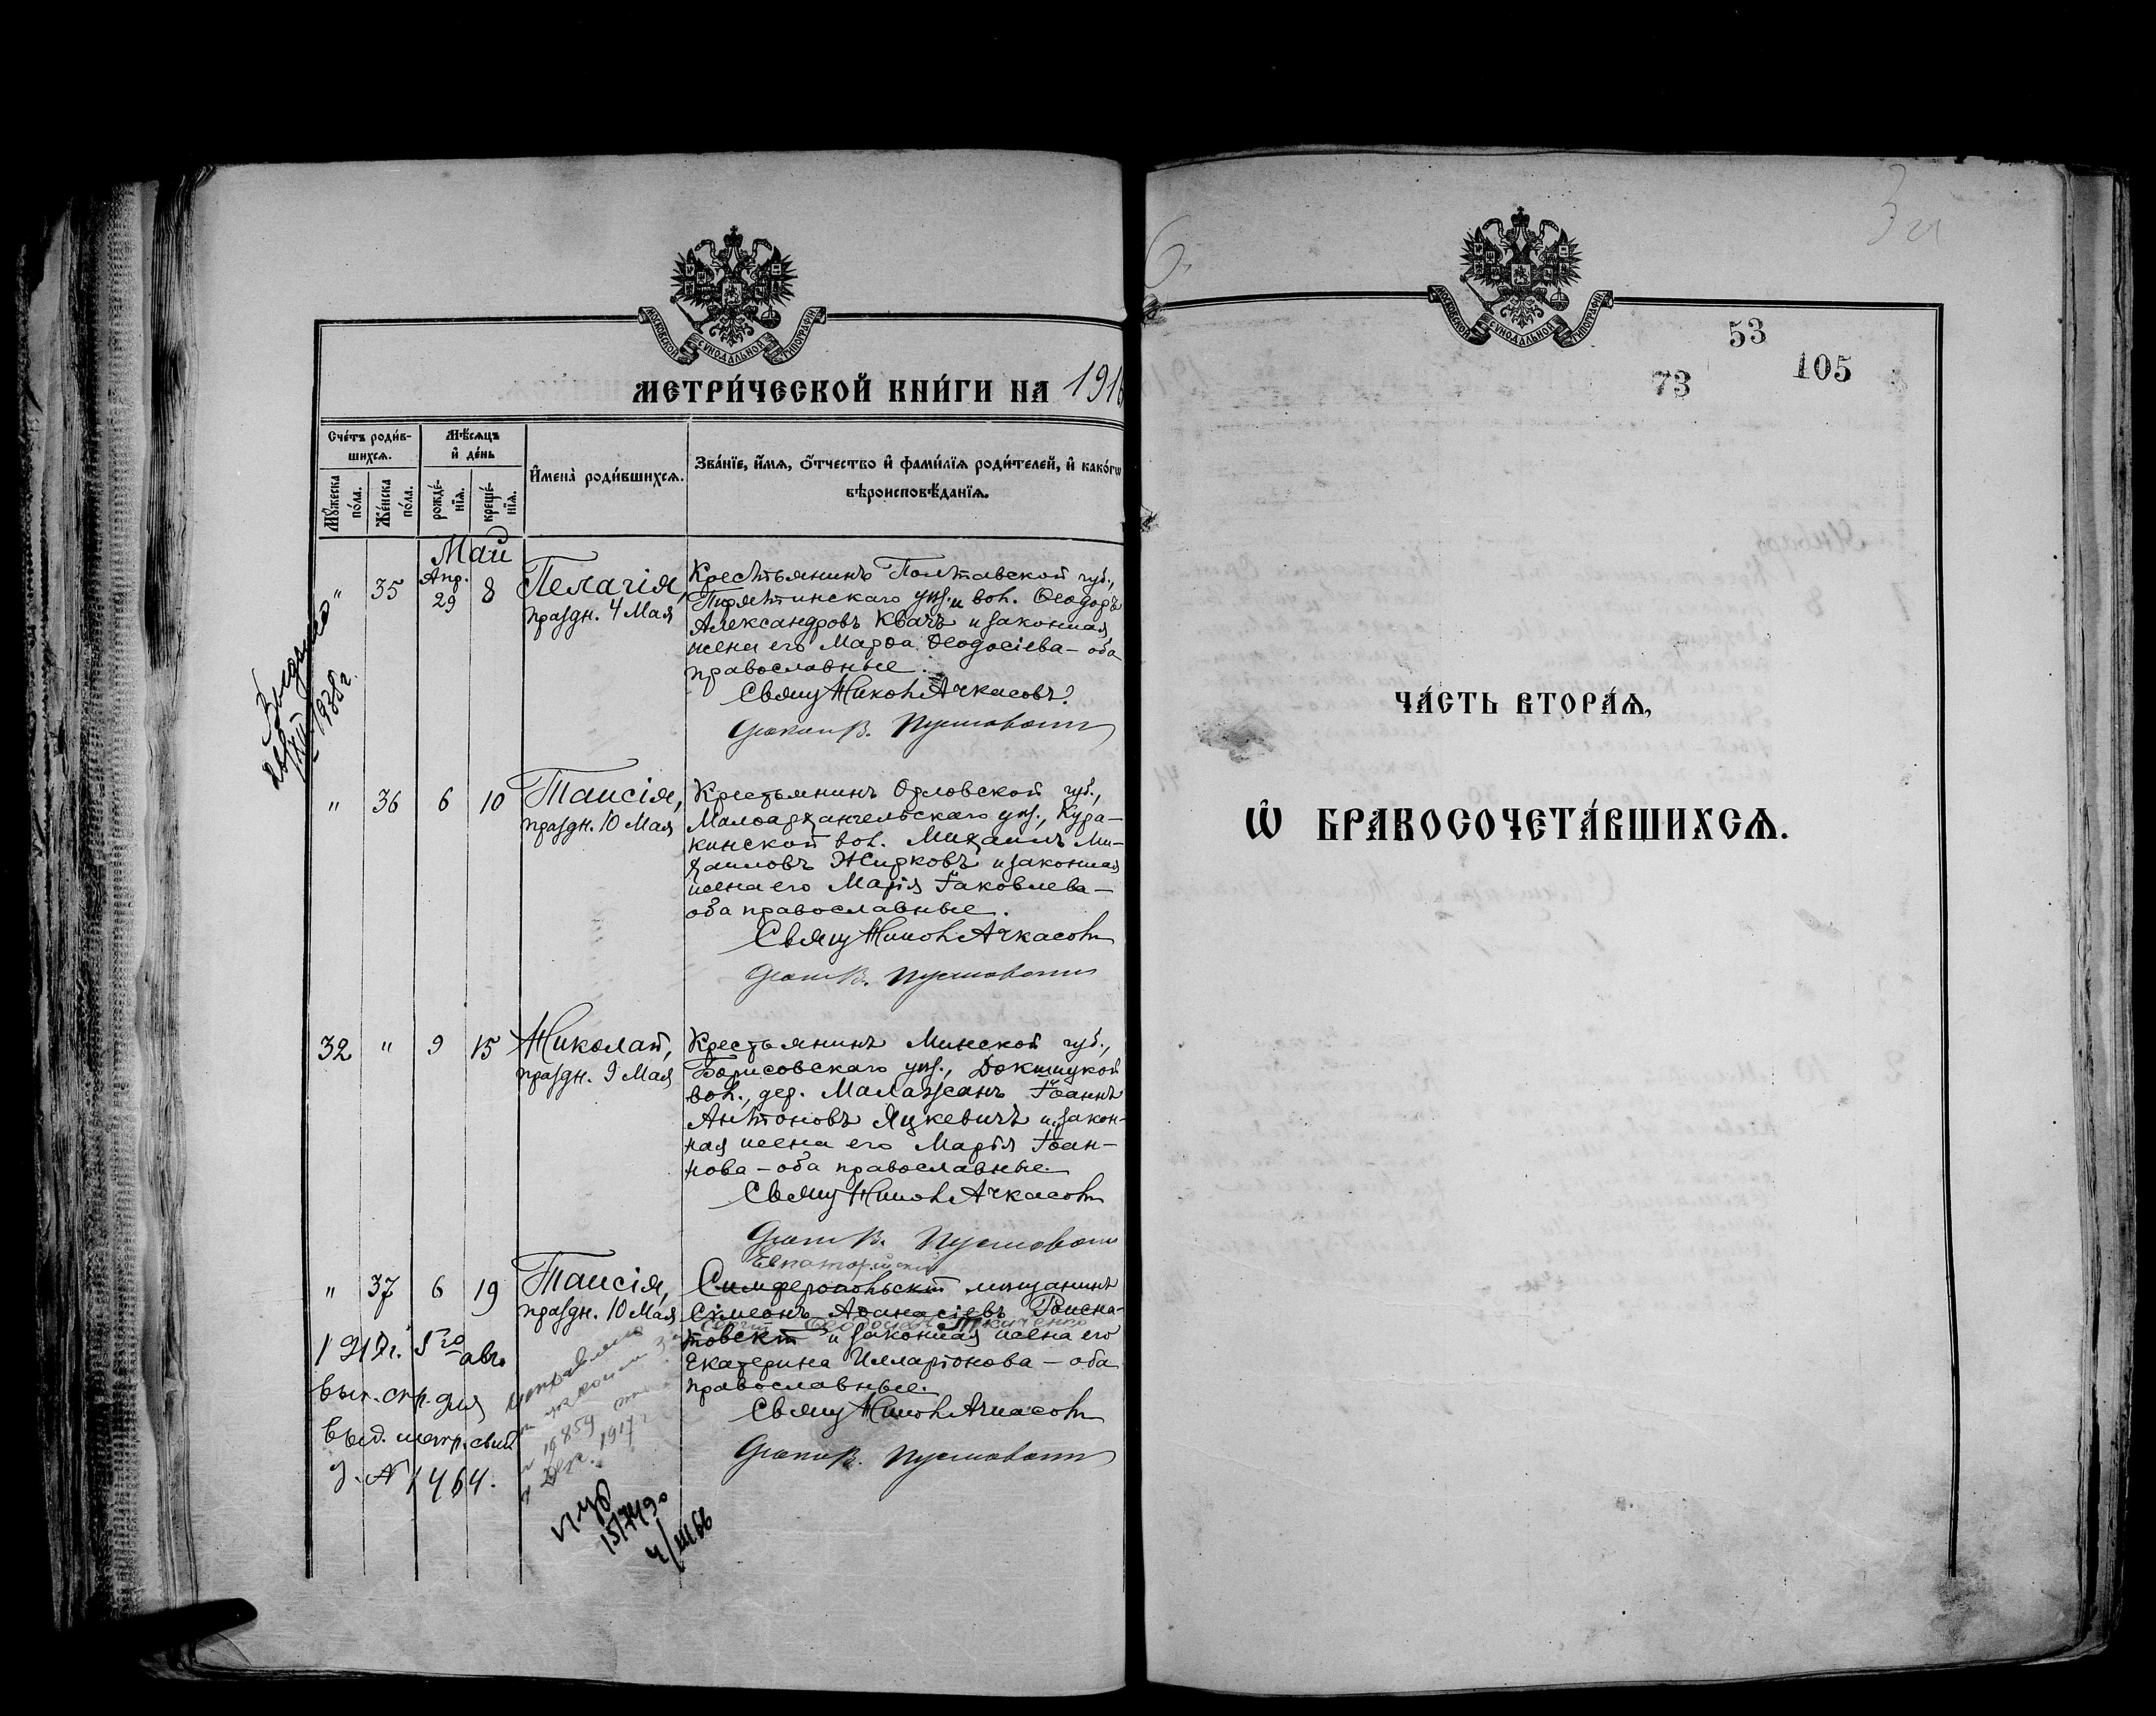 МОСКОВСКОЙ СѴНОДАЛЬНОЙ ТИПОГРАФІИ
МЕТРИ́ЧЕСКОЙ КНИ́ГИ НА 1916
Сче́тъ роди́вшихсѧ.
Мꙋ́жеска по́ла.
Же́нска по́ла.
Мѣ́сѧцъ и҆ де́нь
рожде́нїѧ.
креще́нїѧ.
И҆мена̀ роди́вшихсѧ.
Зва́нїе, и҆́мѧ, ѻ҆́тчество и҆ фами́лїѧ роди́телей, и҆ како́гѡ
вѣроисповѣ́данїѧ.
Май
" 35 Апр. 29 8 Пелагія,
праздн. 4 Мая
Крестьянинъ Полтавской губ.,
Пирятинскаго уѣз. и вол. Ѳеодоръ
Александровъ Квачъ и законная
жена его Марѳа Ѳеодосіева – оба
православные.
Свящ Никол Ачкасовъ.
Псалом В. Пустовойт
Выдано
1938 г.
" 36 6 10 Таисія,
праздн. 10 Мая
Крестьянинъ Орловской губ.,
Малоархангельскаго уѣз., Кура-
кинской вол. Михаилъ Ми-
хаиловъ Жирковъ и законная
жена его Марія Іаковлева –
оба православные.
Свящ Никол Ачкасовъ
Псалом В. Пустовойт
32 " 9 15 Николай,
праздн. 9 Мая
Крестьянинъ Минской губ.,
Борисовскаго уѣз., Докшицкой
вол., дер. Малажанъ Іоаннъ
Антоновъ Яцкевичъ и закон-
ная жена его Марія Іоан-
нова – оба православные.
Свящ Никол Ачкасовъ
Псалом В. Пустовойт
Евпаторійскій
" 37 6 19 Таисія,
праздн. 10 Мая
Симферопольскій мѣщанинъ
Симеонъ Аѳанасіевъ
Сергій Ткаченко
товскій и законная жена его
Екатерина Илларіонова – оба
православные.
Свящ Никол Ачкасовъ
Псалом В. Пустовойт
1917 г. 5го авг.
вып. стр. для
выд. метр. свид
з. № 1464.
исправлено
19859
Дек. 1917 г
4/III 66
53
105
73
МОСКОВСКОЙ СѴНОДАЛЬНОЙ ТИПОГРАФІИ
ЧА́СТЬ ВТОРА́Ѧ,
Ѡ҆ БРАКОСОЧЕТА́ВШИХСѦ.